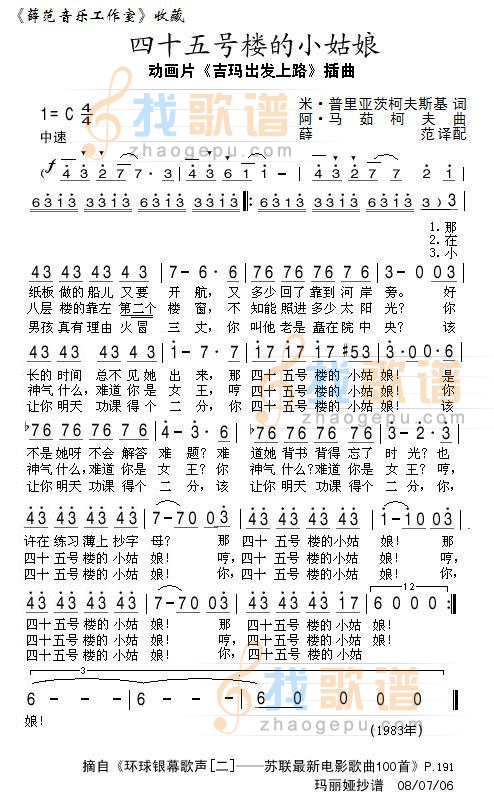 《薛范音乐工作室》收藏
四十五号楼的小姑娘
动画片《吉玛出发上路》插曲
1=C 4/4
中速
米·普里亚茨柯夫斯基 词
阿·马茹柯夫 曲
薛范 译配
找歌谱
zhaogepu.com
1.那
2.在
3.小
43 43 43 43 | 7-6·6 | 76 76 76 76 | 3-0 03 |
纸板 做的 船儿 又要 开航，又 多少 回了 靠到 河岸旁。好
八层 楼的 靠左 第二个 楼窗，不 知能 照进 多少 太阳光？你
男孩 真有 理由 火冒 三丈，你 叫他 老是 矗在 院中央？该
43 43 43 43 | 1-7·7 | 17 17 17 #53 | 3-0·6 |
长的 时间 总不 见她 出来，那 四十 五号 楼的 小姑娘！是
神气 什么，难道 你是 女王，哼， 四十 五号 楼的 小姑娘！你
让你 明天 功课 得个 二分，你 四十 五号 楼的 小姑娘！该
♭76 76 76 76 | 4-3·6 | ♭76 76 76 76 | 3-2·3 |
不是 她呀 不会 解答 难题？难 道她 背书 背得 忘了 时光？也
神气 什么，难道 你是 女王？你 神气 什么，难道 你是 女王？哼，
让你 明天 功课 得个 二分，该 让你 明天 功课 得个 二分，你
43 43 43 43 | 7-70 03 | 43 43 43 43 | 1-10 03 |
许在 练习 薄上 抄字母？那 四十 五号 楼的 小姑娘！那
四十 五号 楼的 小姑娘！哼， 四十 五号 楼的 小姑娘！哼，
四十 五号 楼的 小姑娘！你 四十 五号 楼的 小姑娘！你
43 43 43 43 | 7-70 03 | 43 43 43 17 | 6 0 0 0 :|
四十 五号 楼的 小姑娘！那 四十 五号 楼的 小姑娘！
四十 五号 楼的 小姑娘！哼， 四十 五号 楼的 小姑娘！
四十 五号 楼的 小姑娘！你 四十 五号 楼的 小姑
6 - - - | 6 - - - | 6 0 0 0 | 0 0 0 0 ‖
娘！
(1983年)
摘自《环球银幕歌声[二]——苏联最新电影歌曲100首》P.191
玛丽娅抄谱 08/07/06